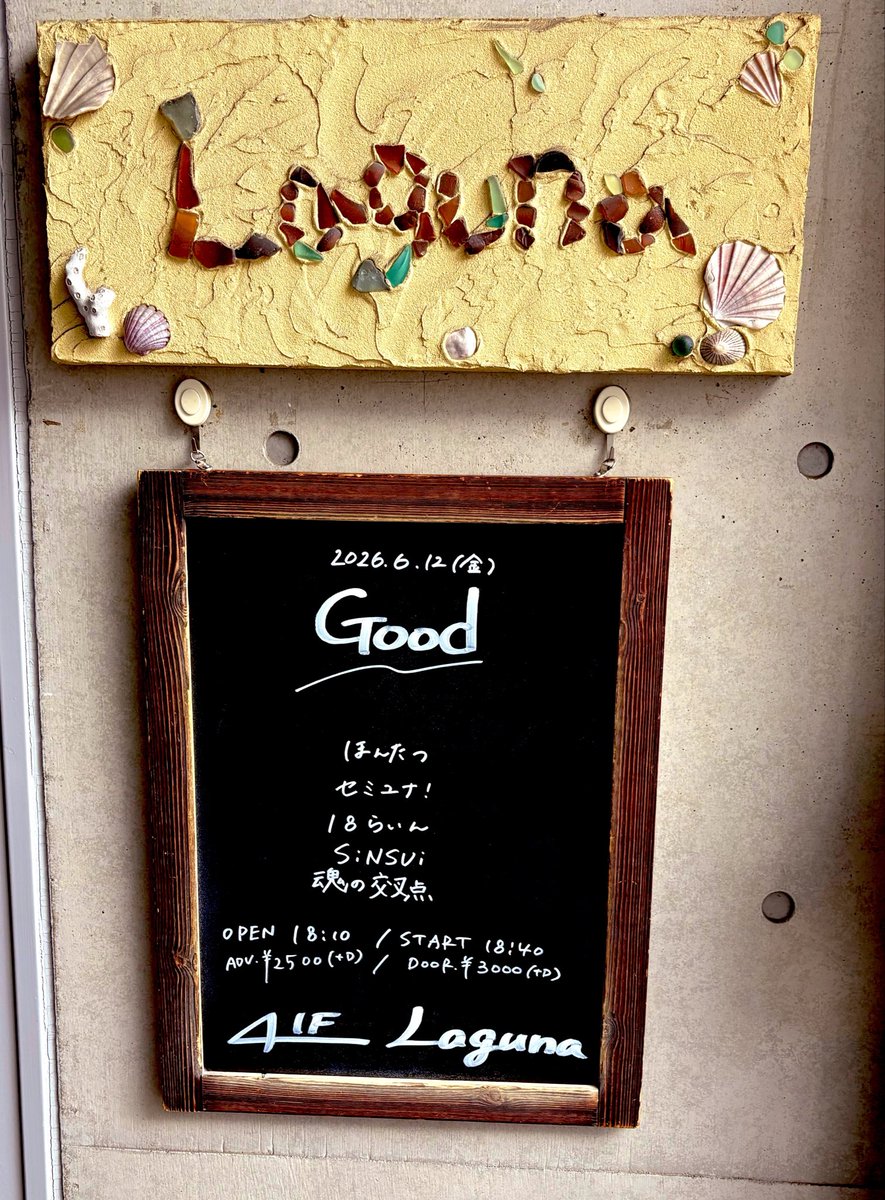 Laguna
2026.6.12(金)
Good
ほんだつ
セミユナ!
18らいん
SiNSUi
魂の交叉点
OPEN 18:10 / START 18:40
ADV.¥2500(+D) / DOOR.¥3000(+D)
1F Laguna